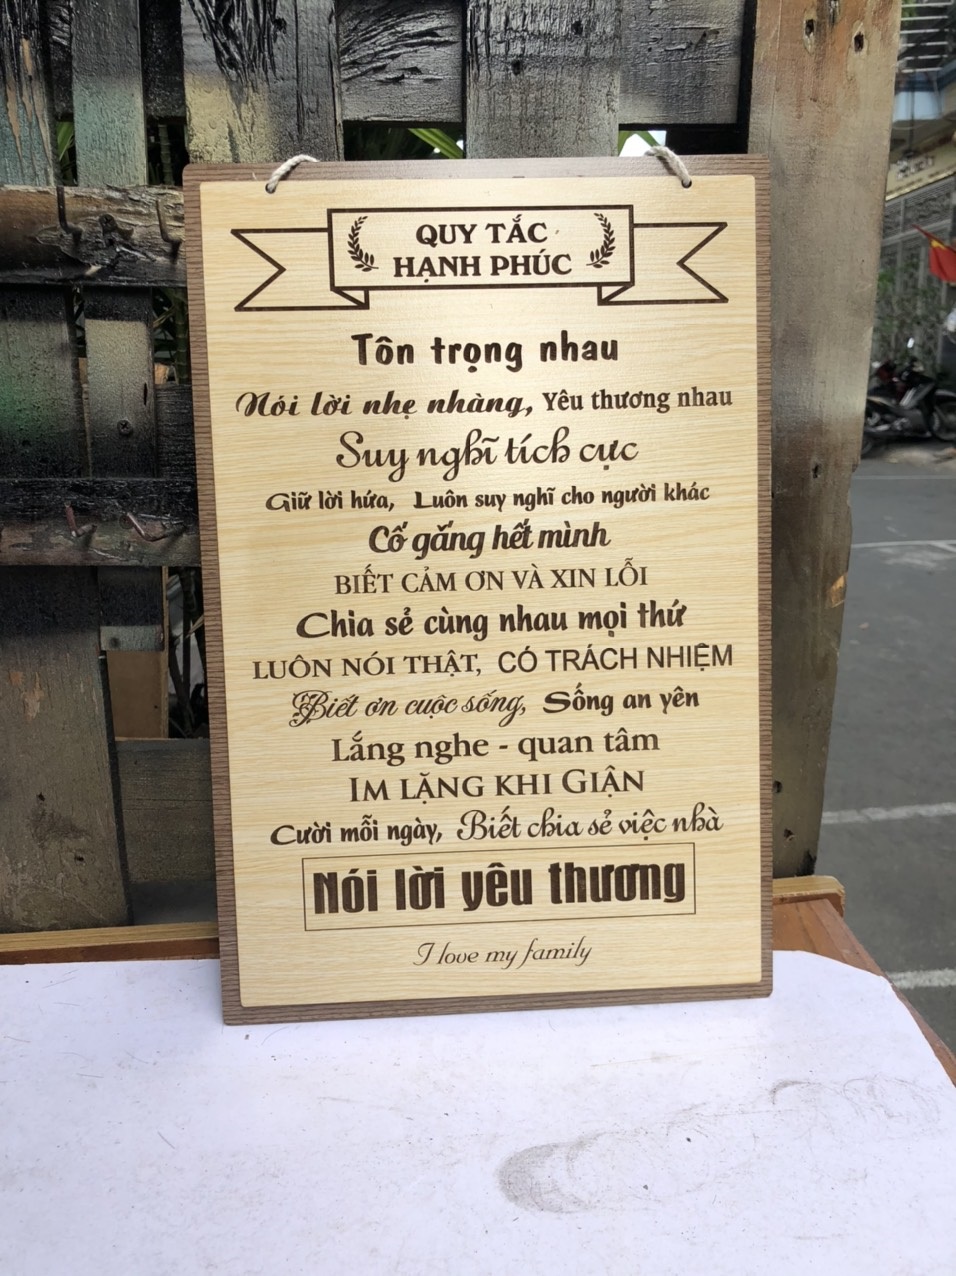 QUY TẮC
HẠNH PHÚC
Tôn trọng nhau
Nói lời nhẹ nhàng, Yêu thương nhau
Suy nghĩ tích cực
Giữ lời hứa, Luôn suy nghĩ cho người khác
Cố gắng hết mình
BIẾT CẢM ƠN VÀ XIN LỖI
Chia sẻ cùng nhau mọi thứ
LUÔN NÓI THẬT, CÓ TRÁCH NHIỆM
Biết ơn cuộc sống, Sống an yên
Lắng nghe - quan tâm
IM LẶNG KHI GIẬN
Cười mỗi ngày, Biết chia sẻ việc nhà
Nói lời yêu thương
I love my family